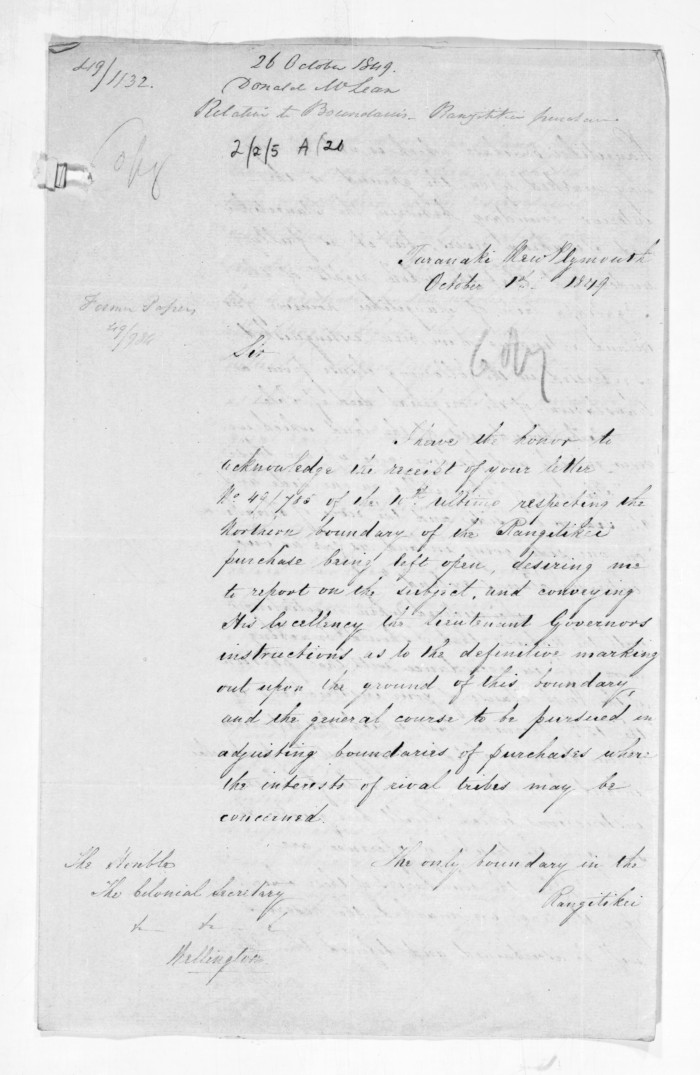 49/1132.
26 October 1849.
Donald McLean
Relative to Boundaries Rangitikei purchase
2/2/5 A/20
Copy
Taranaki New Plymouth
October 1849
Former Papers
49/
Sir
Copy
I have the honor to
acknowledge the receipt of your letter
No. 49/ of the ultimo respecting the
Northern boundary of the Rangitikei
purchase being left open, desiring me
to report on the subject, and conveying
His Excellency the Lieutenant Governors
instructions as to the definitive marking
out upon the ground of this boundary,
and the general course to be pursued in
adjusting boundaries of purchases where
the interests of rival tribes may be
concerned.
The only boundary in the
Rangitikei
The Honble
The Colonial Secretary
Wellington